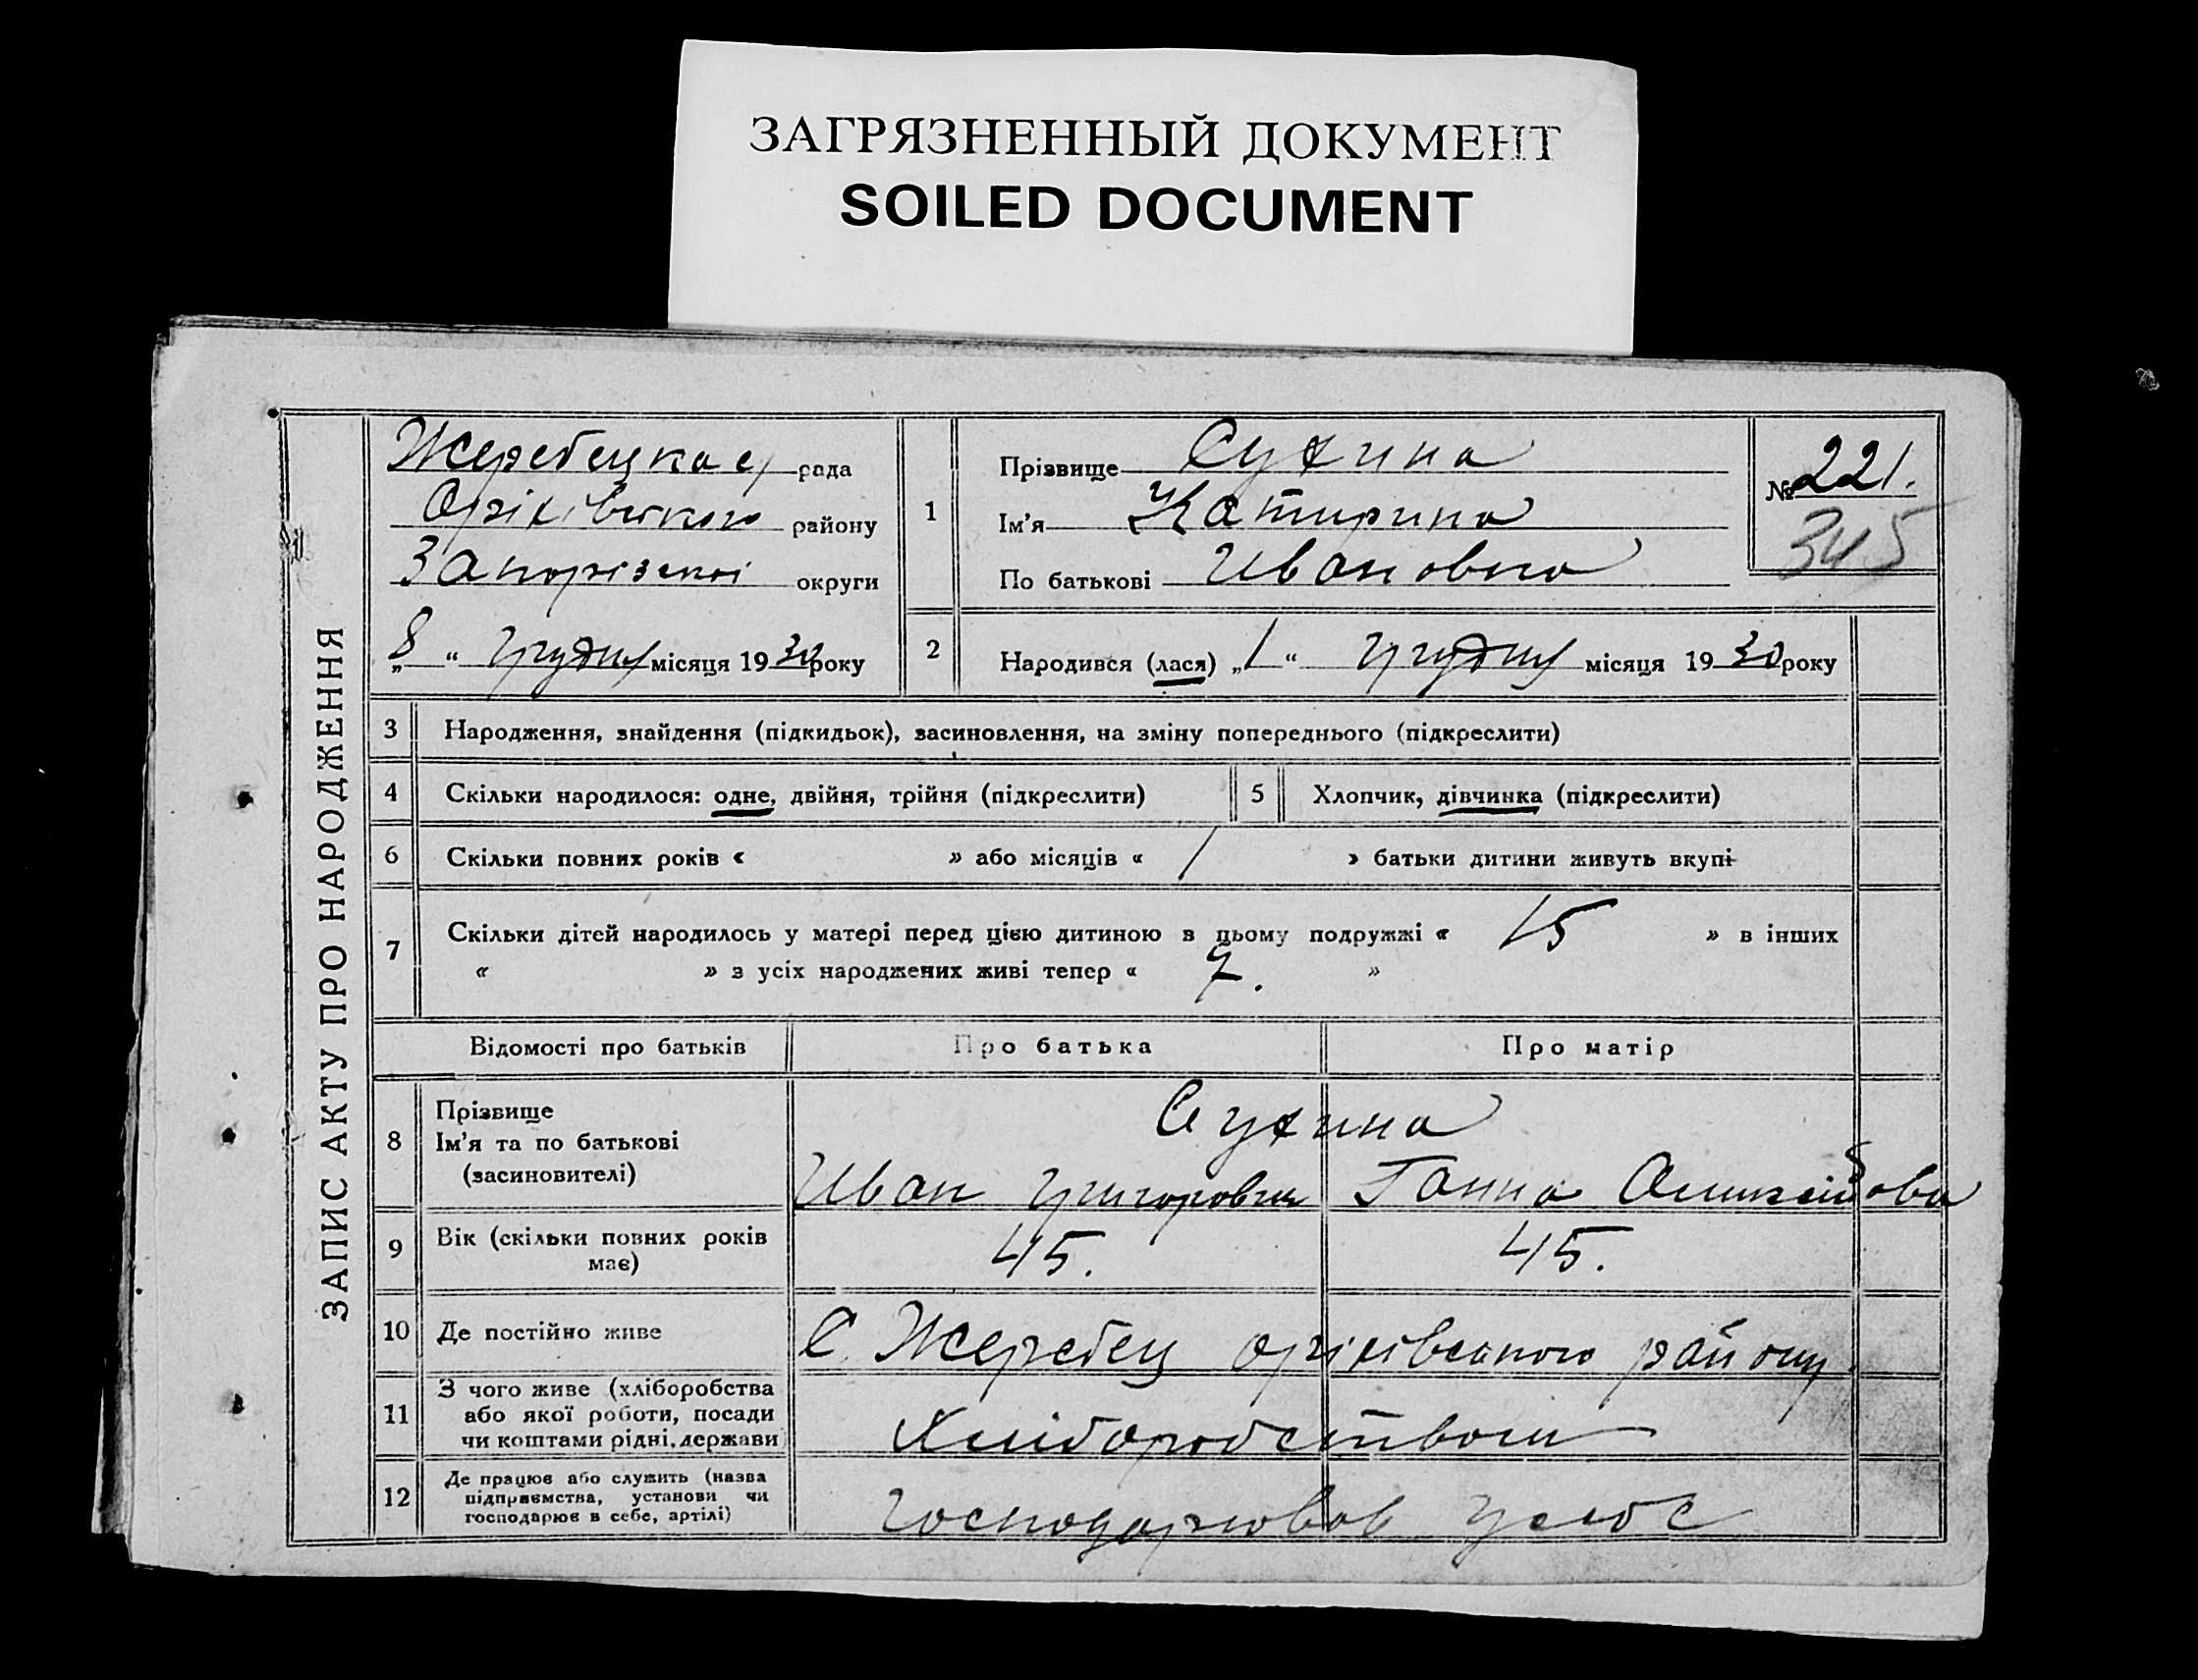 ЗАГРЯЗНЕННЫЙ ДОКУМЕНТ
SOILED DOCUMENT
ЗАПИС АКТУ ПРО НАРОДЖЕННЯ
Жеребецка с/рада
Оріхівського району
Запорізької округи
„8“ грудня місяця 1930 року
1
Прізвище Сухина
Ім’я Катирина
По батькові Ивановна
№ 221.
345
2
Народився (лася) „1“ грудня місяця 1930 року
3 Народження, знайдення (підкидьок), засиновлення, на зміну попереднього (підкреслити)
4 Скільки народилося: одне, двійня, трійня (підкреслити)
5 Хлопчик, дівчинка (підкреслити)
6 Скільки повних років « » або місяців « / » батьки дитини живуть вкупі
7 Скільки дітей народилось у матері перед цією дитиною в цьому подружжі « 15 » в інших
« » з усіх народжених живі тепер « 7. »
Відомості про батьків
Про батька
Про матір
8
Прізвище
Ім’я та по батькові
(засиновителі)
Сухина
Иван Григорович
Ганна
9
Вік (скільки повних років
має)
45.
45.
10 Де постійно живе
С. Жеребец Оріхівського району.
11
З чого живе (хліборобства
або якої роботи, посади
чи коштами рідні, держави
Хліборобством
12
Де працює або служить (назва
підприємства, установи чи
господарює в себе, артілі)
Господарював у себе